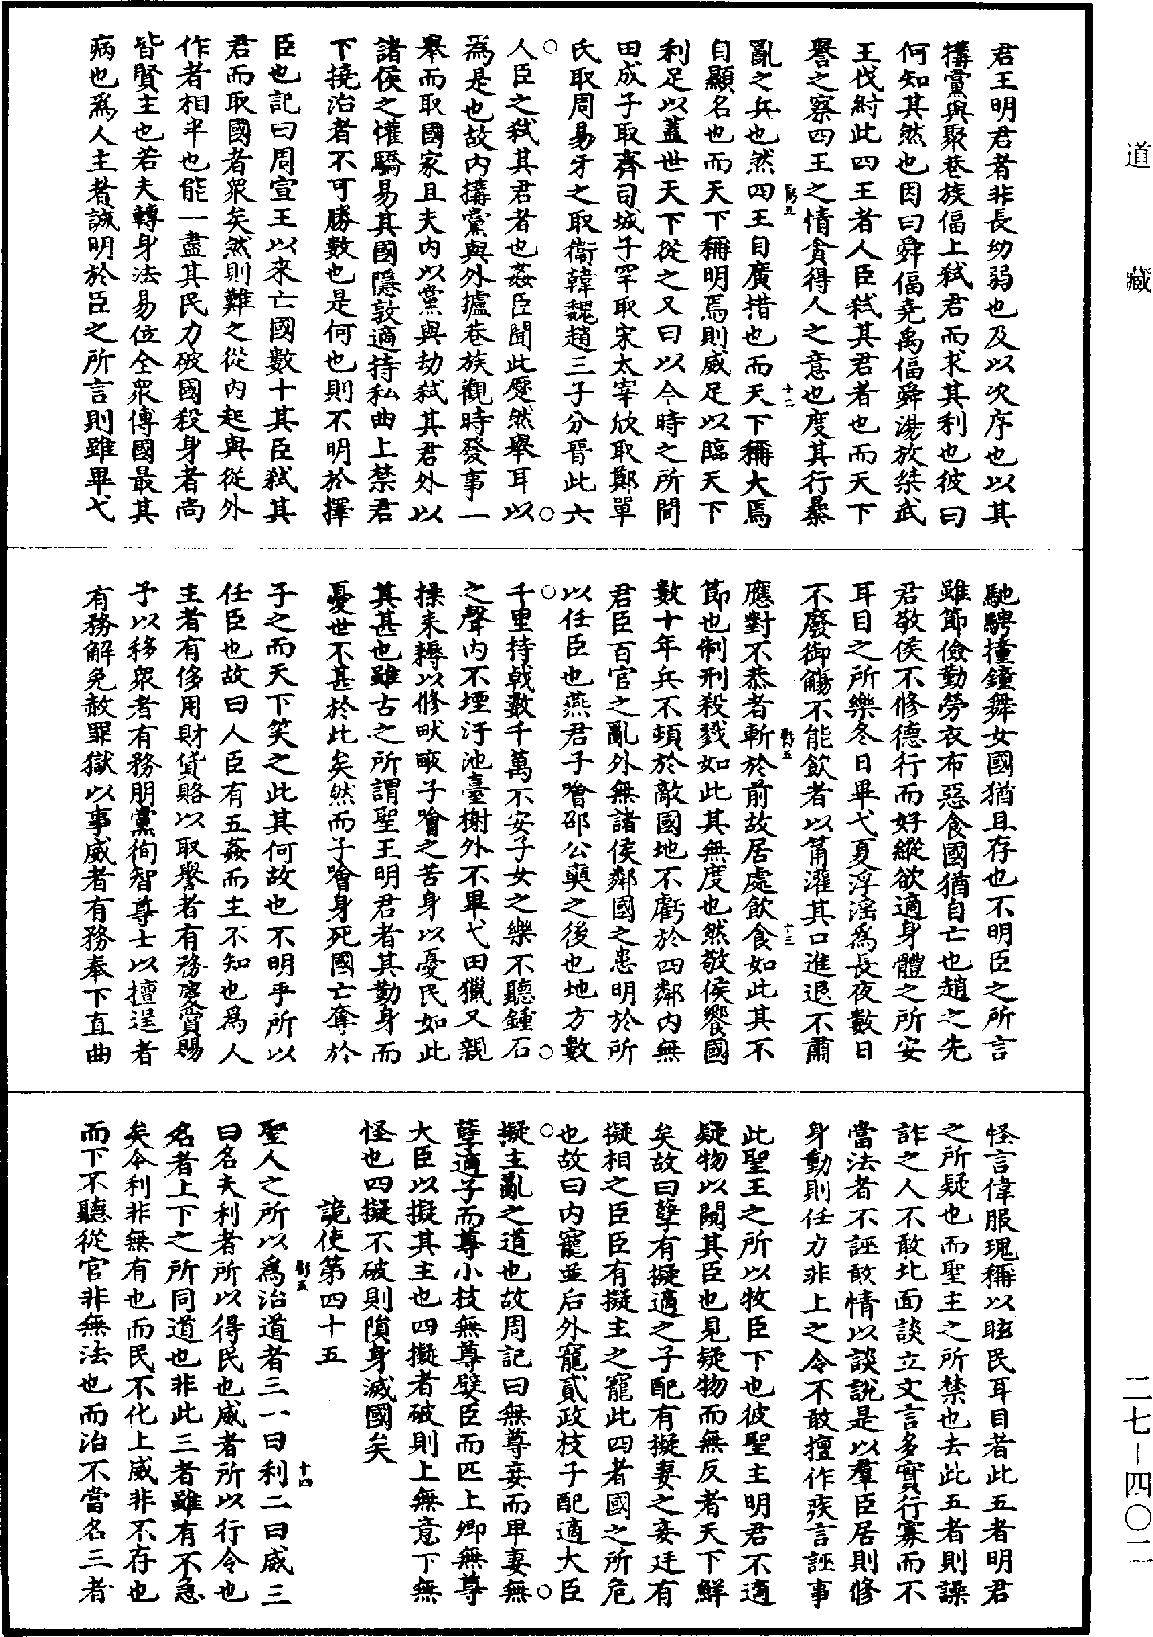 道藏
二七－四〇二
君王明君者非長幼弱也及以次序也以其
搆黨與聚巷族偪上弒君而求其利也彼曰
何知其然也因曰舜偪堯禹偪舜湯放桀武
王伐紂此四王者人臣弒其君者也而天下
譽之察四王之情貪得人之意也度其行暴
亂之兵也然四王自廣措也而天下稱大焉
自顯名也而天下稱明焉則威足以臨天下
利足以蓋世天下從之又曰以今時之所聞
田成子取齊司城子罕取宋太宰欣取鄭單
氏取周易牙之取衛韓魏趙三子分晉此六
人臣之弒其君者也姦臣聞此蹙然舉耳以
為是也故內搆黨與外攄巷族觀時發事一
舉而取國家且夫內以黨與劫弒其君外以
諸侯之懽驕易其國隱敦適持私曲上禁君
下撓治者不可勝數也是何也則不明於擇
臣也記曰周宣王以來亡國數十其臣弒其
君而取國者衆矣然則難之從內起與從外
作者相半也能一盡其民力破國殺身者尚
皆賢主也若夫轉身法易位全衆傅國最其
病也爲人主者誠明於臣之所言則雖畢弋
馳騁撞鐘舞女國猶且存也不明臣之所言
雖節儉勤勞衣布惡食國猶自亡也趙之先
君敬侯不修德行而好縱欲適身體之所安
耳目之所樂冬日畢弋夏浮淫爲長夜數日
不廢御觴不能飲者以筩灌其口進退不肅
應對不恭者斬於前故居處飲食如此其不
節也制刑殺戮如此其無度也然敬侯饗國
數十年兵不頓於敵國地不虧於四鄰內無
君臣百官之亂外無諸侯鄰國之患明於所
以任臣也燕君子噲邵公奭之後也地方數
千里持戟數千萬不安子女之樂不聽鍾石
之聲內不堙汙池臺榭外不畢弋田獵又親
操耒耨以修畎畝子噲之苦身以憂民如此
其甚也雖古之所謂聖王明君者其勤身而
憂世不甚於此矣然而子噲身死國亡奪於
子之而天下笑之此其何故也不明乎所以
任臣也故曰人臣有五姦而主不知也爲人
主者有侈用財貨賂以取譽者有務慶賞賜
予以移衆者有務朋黨徇智尊士以擅逞者
有務解免赦罪獄以事威者有務奉下直曲
怪言偉服瑰稱以眩民耳目者此五者明君
之所疑也而聖主之所禁也去此五者則譟
詐之人不敢北面談立文言多實行寡而不
當法者不誣敢情以談說是以羣臣居則修
身動則任力非上之令不敢擅作疾言誣事
此聖王之所以牧臣下也彼聖主明君不適
疑物以闚其臣也見疑物而無反者天下鮮
矣故曰孽有擬適之子配有擬妻之妾廷有
擬相之臣臣有擬主之寵此四者國之所危
也故曰內寵並后外寵貳政枝子配適大臣
擬主亂之道也故周記曰無尊妾而卑妻無
孽適子而尊小枝無尊嬖臣而匹上卿無尊
大臣以擬其主也四擬者破則上無意下無
怪也四擬不破則隕身滅國矣
詭使第四十五
聖人之所以爲治道者三一曰利二曰威三
曰名夫利者所以得民也威者所以行令也
名者上下之所同道也非此三者雖有不急
矣今利非無有也而民不化上威非不存也
而下不聽從官非無法也而治不當名三者